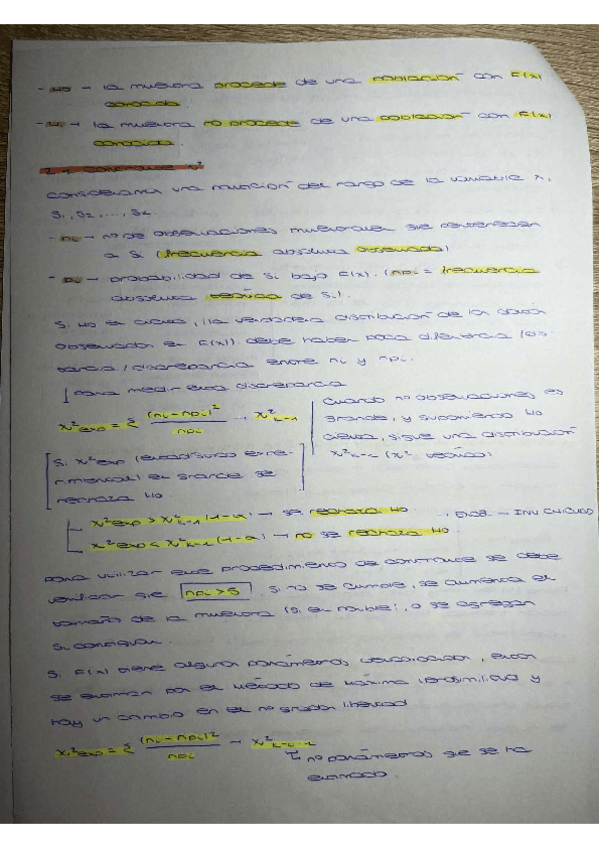 - H0 → la muestra procede de una población con F(x)
conocida.
- H1 → la muestra no procede de una población con F(x)
conocida.
χ²
consideramos una partición del rango de la variable x,
S1, S2, ..., Sk.
- ni → nº de observaciones muestrales que pertenecen
a Si (frecuencia absoluta observada)
- pi → probabilidad de Si bajo F(x). (npi = frecuencia
absoluta teórica de Si).
Si H0 es cierta, (la verdadera distribución de los datos
observados es F(x)) debe haber poca diferencia / dis-
tancia / discrepancia entre ni y npi.
para medir esta discrepancia
χ²exp = Σ (ni - npi)² / npi → χ²k-1
cuando nº observaciones es
grande, y suponiendo H0
cierta, sigue una distribución
χ²k-1 (χ² teórico)
Si χ²exp (estadístico expe-
rimental) es grande se
rechaza H0.
χ²exp > χ²k-1 (1-α) → se rechaza H0
χ²exp < χ²k-1 (1-α) → no se rechaza H0.
→ INV CHICUAD
para utilizar este procedimiento de contraste se debe
verificar que npi > 5. Si no se cumple, se aumenta el
tamaño de la muestra (si es posible), o se agregan
Si contiguos.
Si F(x) tiene algunos parámetros desconocidos, estos
se estiman por el método de máxima verosimilitud y
hay un cambio en el nº grados libertad
χ²exp = Σ (ni - npi)² / npi → χ²k-L-1
→ nº parámetros que se ha
estimado.